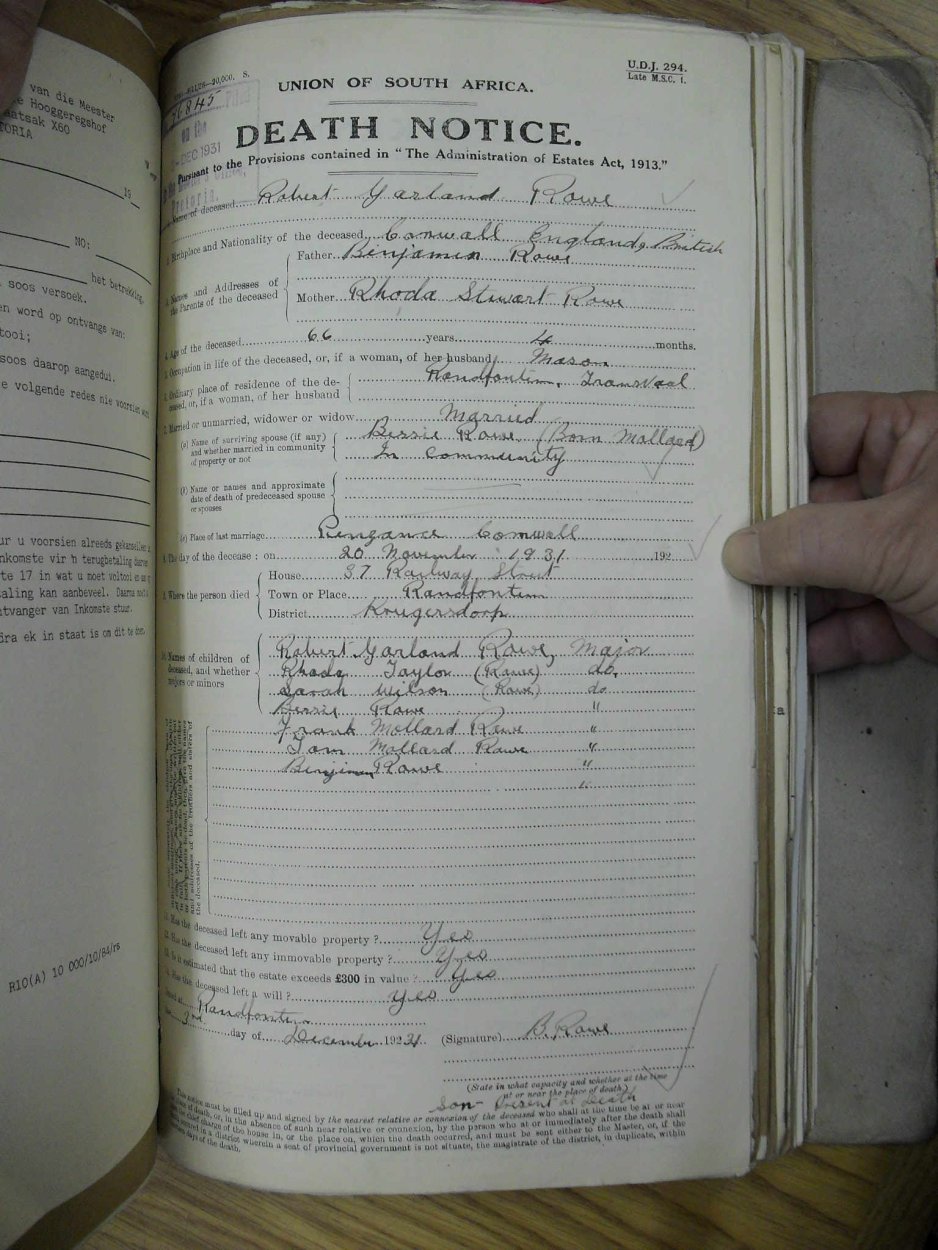 van die Meester
Hooggeregshof
aatsak X60
TORIA
19
NO:
het betrekking,
soos versoek.
en word op ontvangs van:
tooi;
soos daarop aangedui.
e volgende redes nie voorsien
ur u voorsien alreeds gekanselleer
nkomste vir 'n terugbetaling
te 17 in wat u moet voltooi en
aling kan aanbeveel. Daarna moet
tvanger van Inkomste stuur.
ra ek in staat is om dit te doen.
R10(A) 10 000/10/84/rs
U.D.J. 294.
Late M.S.C. 1.
20,000. S.
UNION OF SOUTH AFRICA.
76845
DEATH NOTICE.
DEC 1931
Pursuant to the Provisions contained in "The Administration of Estates Act, 1913."
Pretoria.
Name of deceased Robert Garland Rowe
Birthplace and Nationality of the deceased Cornwall England, British
Names and Addresses of the Parents of the deceased
Father Benjamin Rowe
Mother Rhoda Stewart Rowe
4. Age of the deceased 66 years 4 months.
5. Occupation in life of the deceased, or, if a woman, of her husband Mason
6. Ordinary place of residence of the deceased, or, if a woman, of her husband Randfontein, Transvaal
7. Married or unmarried, widower or widow Married
(a) Name of surviving spouse (if any) and whether married in community of property or not
Bessie Rowe (Born Mollard)
In Community
(b) Name or names and approximate date of death of predeceased spouse or spouses
(c) Place of last marriage Penzance Cornwall
8. The day of the decease: on 20 November 1931. 192
9. Where the person died
House 37 Railway Street
Town or Place Randfontein
District Krugersdorp
10. Names of children of deceased, and whether majors or minors
Robert Garland Rowe, Major
Rhoda Taylor (Rowe) do.
Sarah Wilson (Rowe) do
Bessie Rowe "
Frank Mollard Rowe "
Tom Mollard Rowe "
Benjiman Rowe "
"
and addresses of the brothers and sisters of
the deceased.
11. Has the deceased left any movable property? Yes
12. Has the deceased left any immovable property? Yes
13. Is it estimated that the estate exceeds £300 in value? Yes
14. Has the deceased left a will? Yes
Dated at Randfontein
the 3rd day of December 1931 (Signature) B. Rowe
(State in what capacity and whether at the time
at or near the place of death)
Son - Present at Death
This notice must be filled up and signed by the nearest relative or connexion of the deceased who shall at the time be at or near
of death, or, in the absence of such near relative or connexion, by the person who at or immediately after the death shall
the chief charge of the house in, or the place on, which the death occurred, and must be sent either to the Master, or, if the
occurred in a district wherein a seat of provincial government is not situate, the magistrate of the district, in duplicate, within
days of the death.